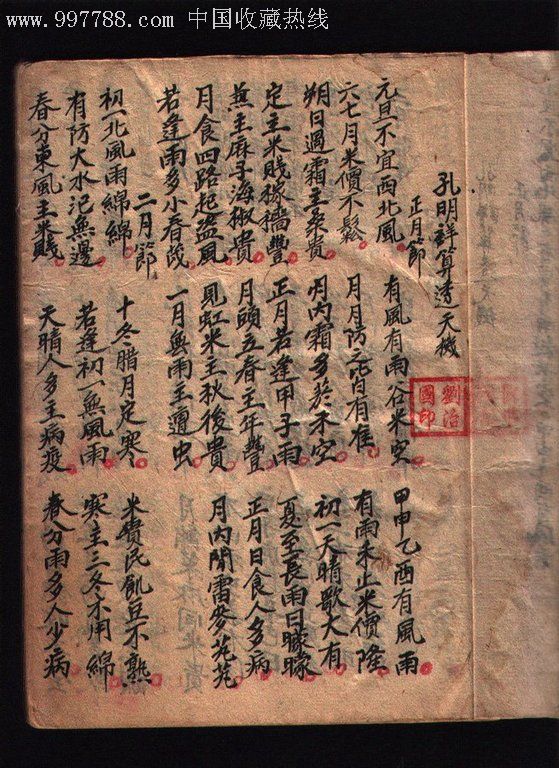 www.997788.com 中国收藏热线
孔明詳算透天機
正月節
元旦不宜西北風 有風有雨谷米空 甲申乙酉有風雨
六七月米價不鬆 月月防之皆有准 有雨未止米價隆
朔日遇霜主桑貴 月内霜多菸禾空 初一天晴歌大有
定主米賤稼穡豐 正月若逢甲子雨 夏至長雨日朦朦
兼主麻子海椒貴 月頭立春主年豐 正月日食人多病
月食四路起盜風 見虹米主秋後貴 月内聞雷麥芃芃
若逢雨多小春茂 一月無雨主遭虫
二月節
初一北風雨綿綿 十冬腊月定寒 米貴民飢豆不熟
有防大水氾無邊 若逢初一無風雨 寒主三冬不用綿
春分東風主米賤 天晴人多主病疫 春分雨多人少病
劉治國印